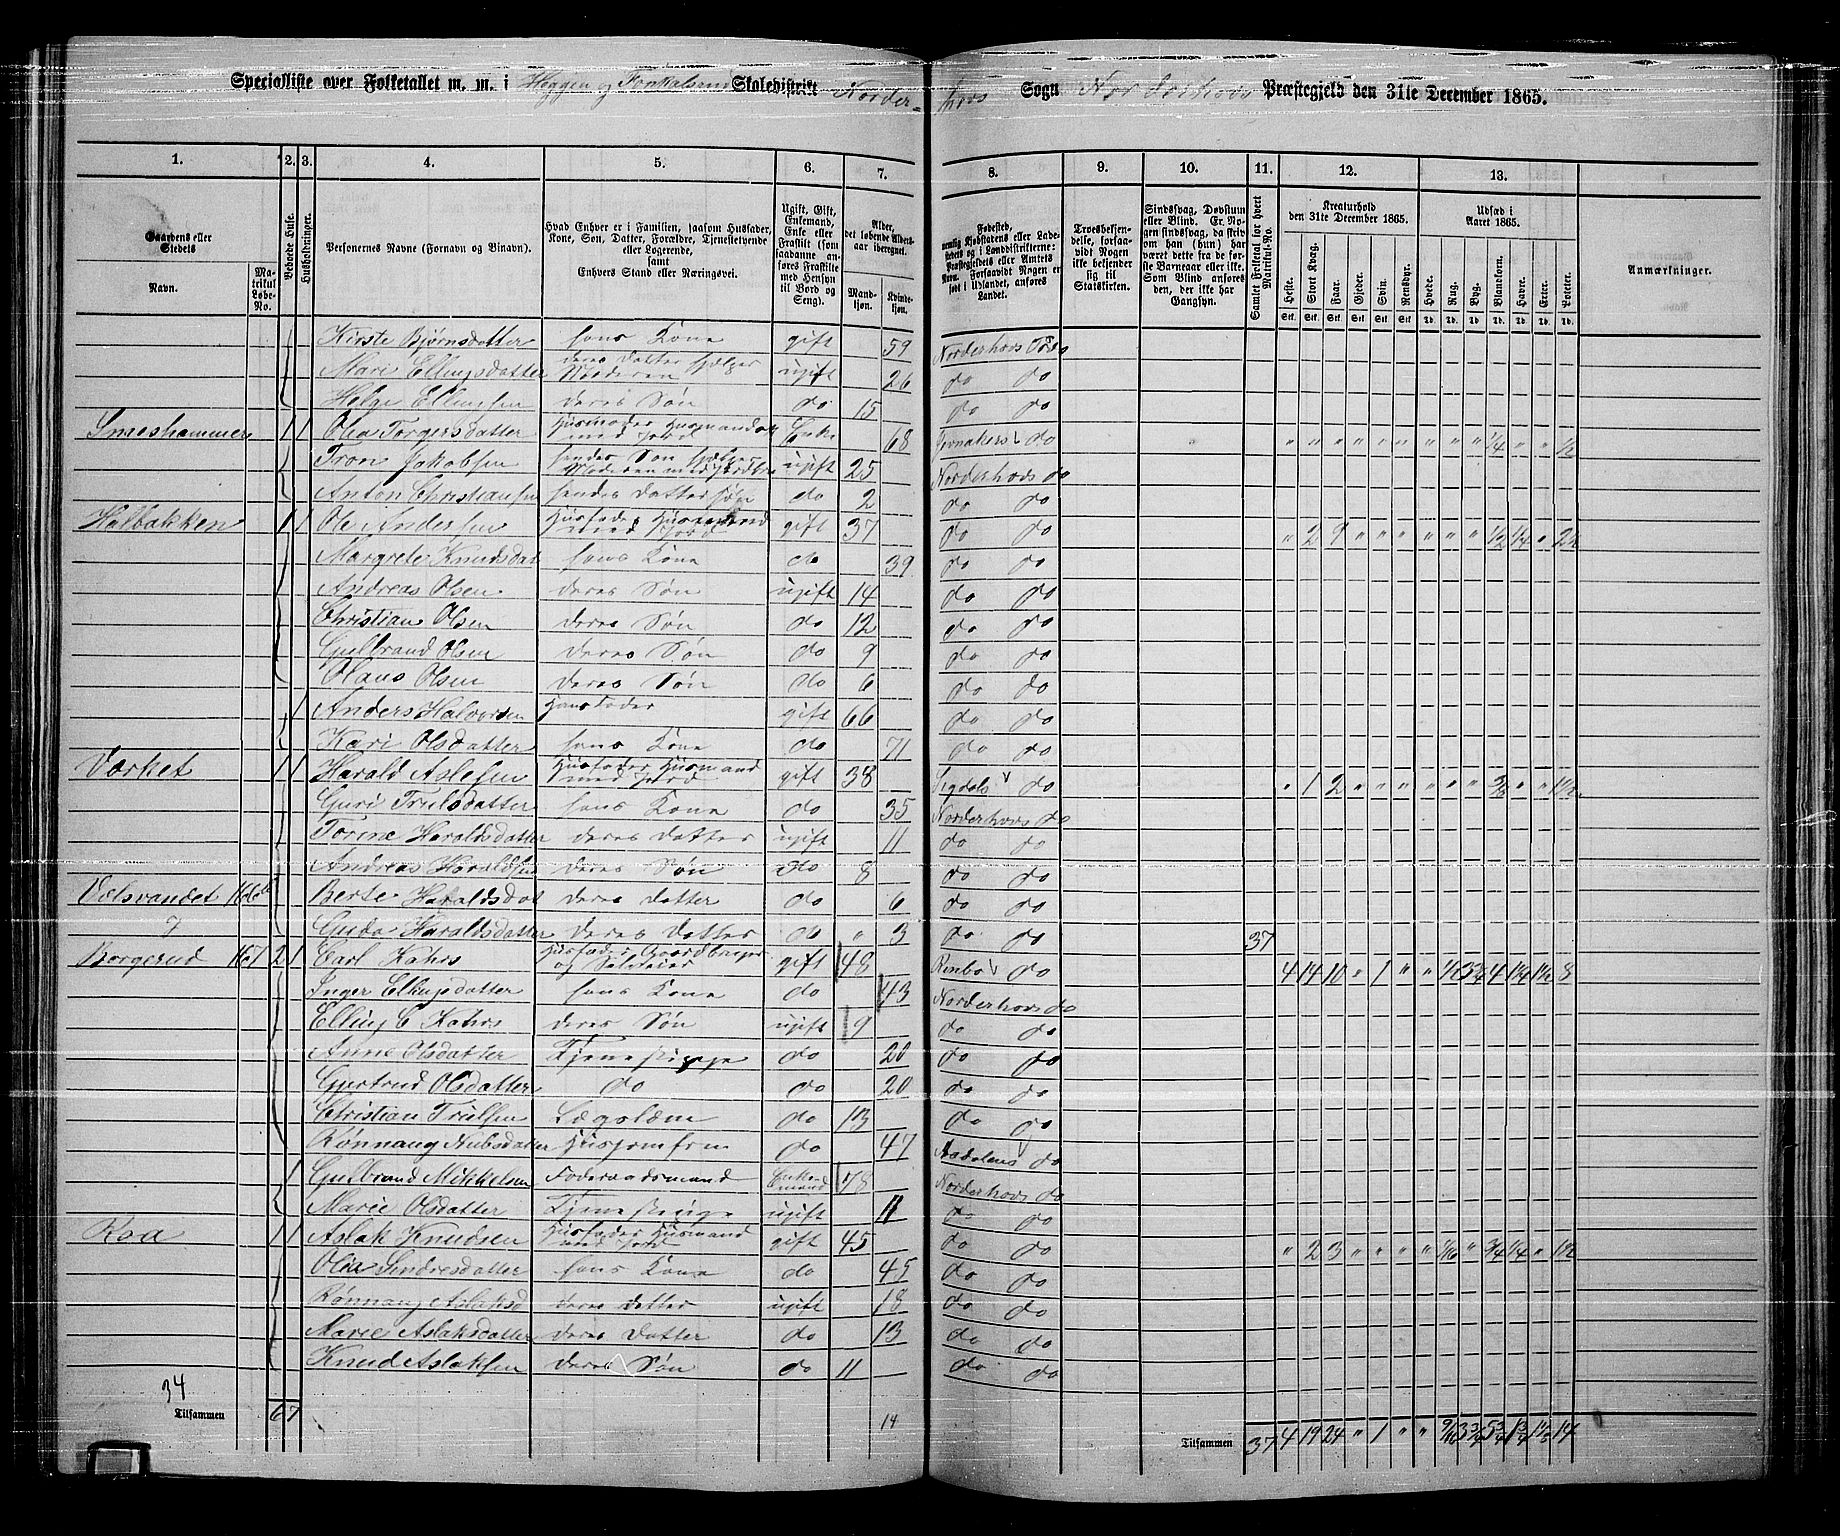 Specialliste over Folketallet m. m. i Heggen og Skoledistrikt Norder- hovs Sogn Norderhovs Præstegjeld den 31te December 1865.
1. 2. 3. 4. 5. 6. 7. 8. 9. 10. 11. 12. 13.
Gaardens eller Stedets Navn. Matrikul Løbe-No. Beboede Huse. Husholdninger. Personernes Navne (Fornavn og Binavn).
Hvad Enhver er i Familien, saasom Husfader, Kone, Søn, Datter, Forældre, Tjenestetyende eller Logerende, samt Enhvers Stand eller Næringsvei.
Ugift, Gift, Enkemand, Enke eller Fraskilt (som saadanne anføres Fraskilte med Hensyn til Bord og Seng).
Alder, det løbende Aldersaar iberegnet. Mandkjøn. Kvindekjøn.
Trosbekjendelse, forsaavidt Nogen ikke bekjender sig til Statskirken.
Sindssvag, Døvstum eller Blind. Er Nogen sindssvag, da skrives om han (hun) har været dette fra før Barneaar eller ikke. Som Blind anføres den, der ikke har Gangsyn.
Samlet Folketal for hvert Matrikul-No.
Kreaturhold den 31te December 1865. Udsæd i Aaret 1865. Anmærkninger.
Heste. Stort Kvæg. Faar. Gjeder. Svin. Rensdyr. Hvede. Rug. Byg. Blandkorn. Havre. Erter. Poteter.
Stk. Stk. Stk. Stk. Stk. Stk. Td. Td. Td. Td. Td. Td. Td.
Kirste Bjørnsdatter hans Kone gift 59 Norderhovs
Mari Ellingsdatter deres Datter hjelper Moderen ugift 26 do do
Helge Ellingsen deres Søn do 15 do do
Smeshammer 1 1 Olia Torgersdatter Husmoder med Jord Enke 68 Jevnakers do " " " " " " " " " 1/4 " " 1/2
Tron Jakobsen hendes Søn hjelper Moderen med ugift 25 Norderhovs do
Anton Christiansen hendes Dattersøn do 2 do do
Halbakken 1 1 Ole Andersen Husfader Husmand med Jord gift 37 do do " 2 9 " " " " " " 1/2 1/4 " 2 1/2
Margrete Knudsdat hans Kone do 39 do do
Andreas Olsen deres Søn ugift 14 do do
Christian Olsen deres Søn do 12 do do
Gulbrand Olsen deres Søn do 9 do do
Olaus Olsen deres Søn do 6 do do
1 Anders Halvorsen Husfader gift 66 do do
Kari Olsdatter hans Kone do 71 do do
Værket 1 1 Harald Aslesen Husfader Husmand med Jord gift 38 Sigdals do " 1 2 " " " " " " 3/8 " " 1 1/2
Guri Trulsdatter hans Kone do 35 Norderhovs do
Torine Haraldsdatter deres Datter ugift 11 do do
Andreas Haraldsen deres Søn do 8 do do
Vælsvandet 166 Berte Haraldsdat deres Datter do 6 do do
Haraldsdatter deres Datter do " 3 do do 37
Borgerud 167 2 1 Carl Kahrs Husfader Gaardbruger og gift 48 do 4 14 10 " 1 " " 4 8
Inger Ellingsdatter hans Kone do 43 Norderhovs do
Elling C Kahrs deres Søn ugift 9 do do
Anne Olsdatter Tjenestepige do 20 do do
Gjertrud Olsdatter do do 20 do do
Christian Trulsen Lægslæm do 13 do do
Rønnaug Husjomfru do 47 Aadalens do
1 Gulbrand Mikkelsen Foderaadsmand Enkemand 78 Norderhovs do
Marie Olsdatter Tjenestepige ugift 11 do do
Roa 1 1 Aslak Knudsen Husfader Husmand med Jord gift 45 do do " 2 3 " " " " 1/16 " 3/4 1/4 " 1 1/2
Olia Sindresdatter hans Kone do 45 do do
Rønnaug Aslaksd deres Datter ugift 18 do do
Marie Aslaksdatter deres Datter do 13 do do
Knud Aslaksen deres Søn do 11 do do
34
Tilsammen 6 7 14 Tilsammen 37 4 19 24 " 1 " " 9/16 3 3/4 5 3/4 14